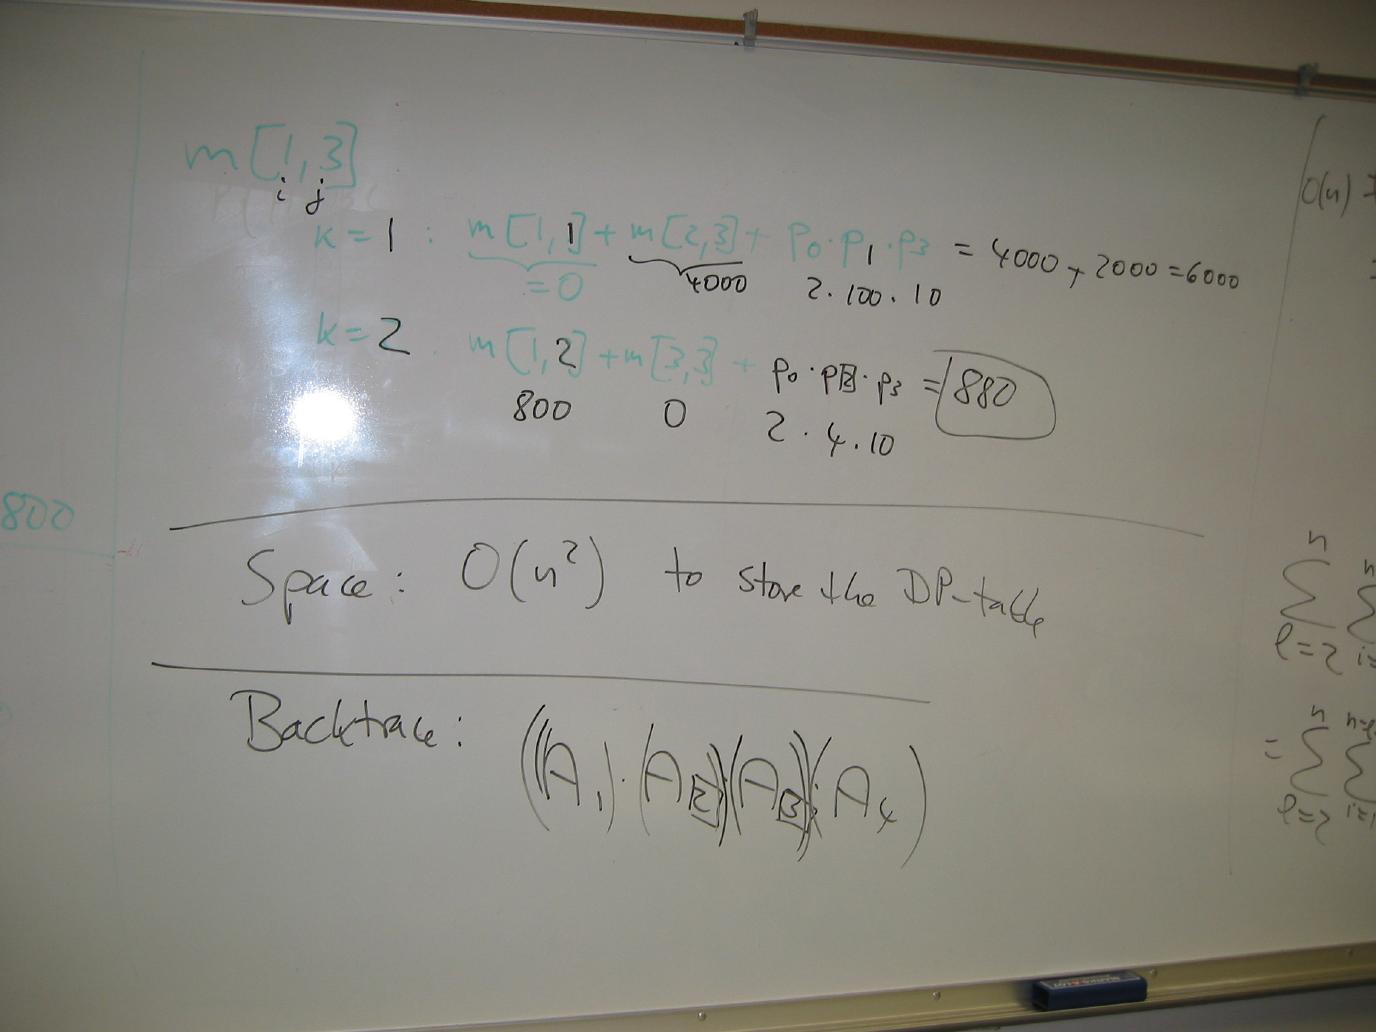 m[1,3]
i j
k=1 : m[1,1] + m[2,3] + p₀·p₁·p₃ = 4000 + 2000 = 6000
=0 4000 2·100·10
k=2 : m[1,2] + m[3,3] + p₀·p₂·p₃ = 880
800 0 2·4·10
800
Space: O(n²) to store the DP-table
Backtrace: ((A₁)·(A₂)·(A₃))·(A₄)
O(n)
n n
Σ Σ
l=2 i=
n n-l
= Σ Σ
l=2 i=1